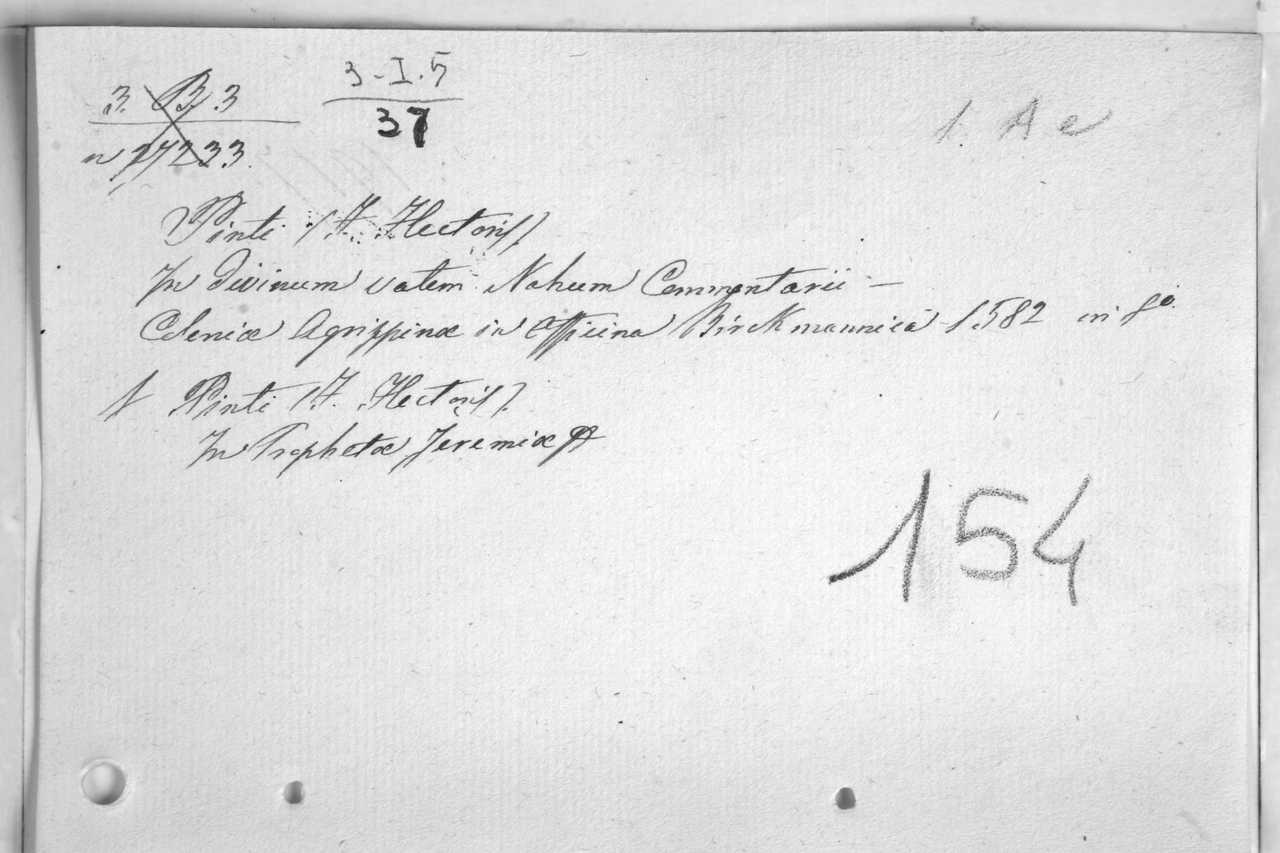 3. B. 3
n 17233.
3-I.5
37
1. A e
Pinti (F. Hectoris)
In divinum vatem Nahum Commentarii —
Coloniæ Agrippinæ in officina Birckmannica 1582 in 8º.
Pinti (F. Hectoris)
In Prophetæ Jeremiæ
154